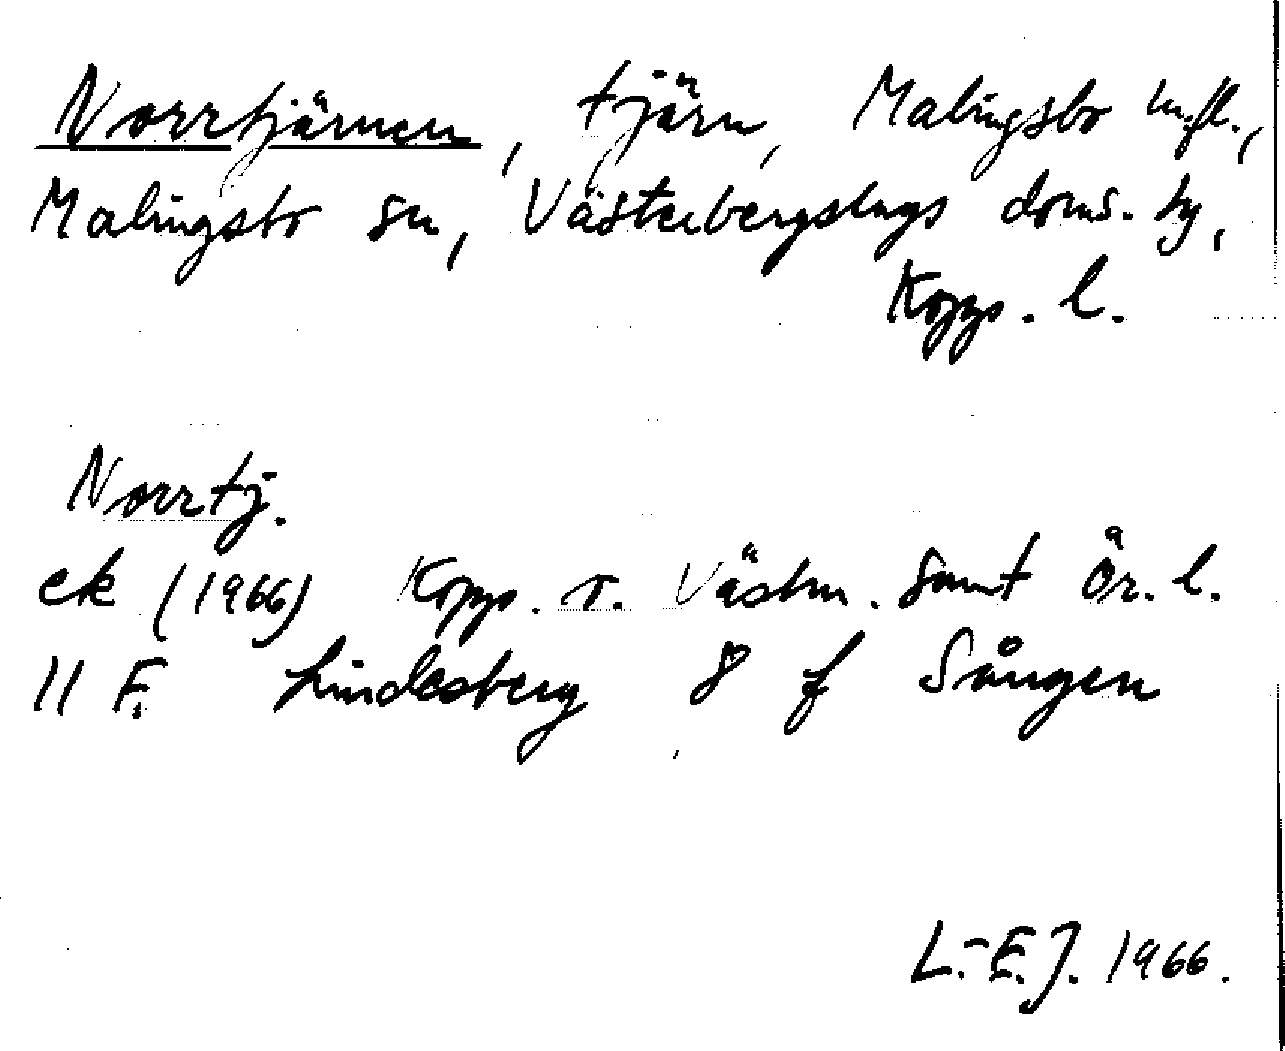 Norrtjärnen, tjärn, Malingsbo m.fl.,
Malingsbo sn, Västerbergslags doms. hg,
Kopps. l.
Norrtj.
ek (1966) Kopps. v. Västm. samt Ör. l.
11 F. Lindesberg 8 f Sången
L.-E.J. 1966.